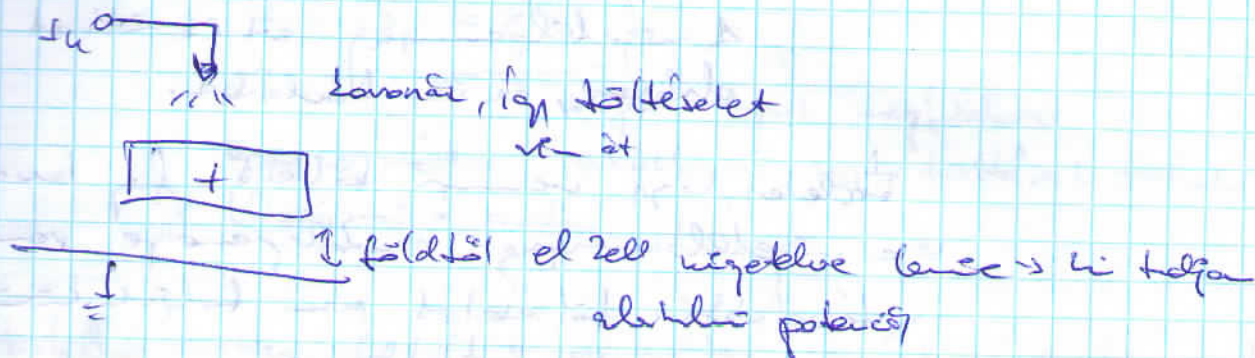 koronáz, így töltéseket
vesz át
+
földtől el kell szigetelve lennie → ki tudjon
alakulni potenciál